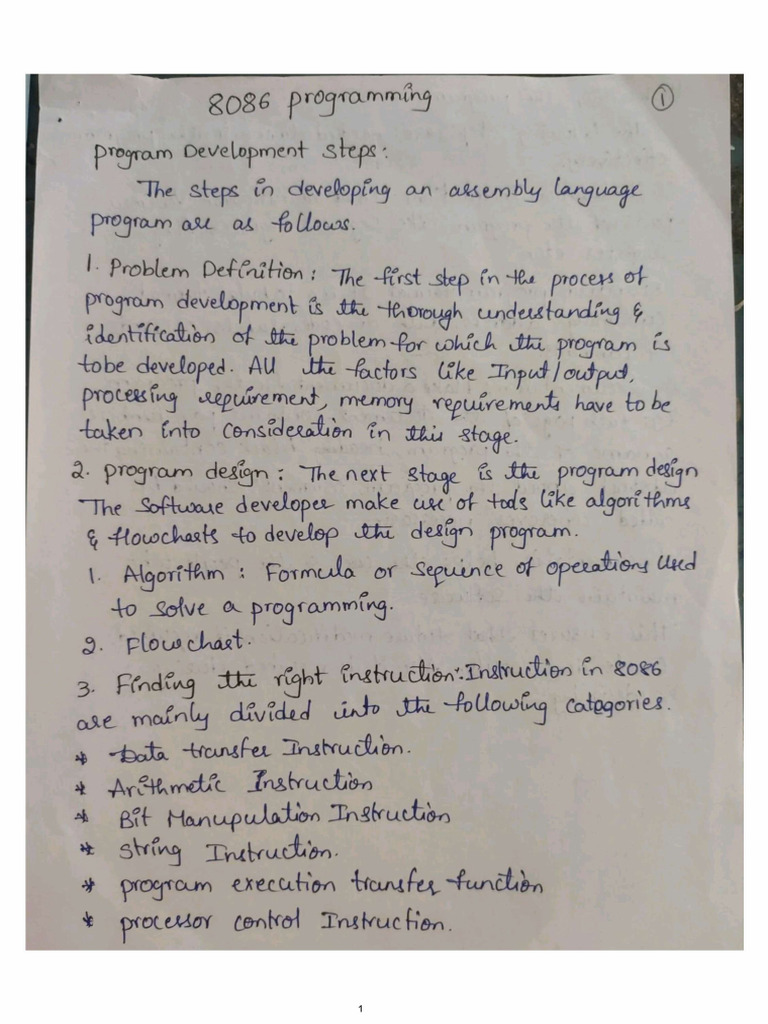 8086 programming
①
Program Development Steps:
The steps in developing an assembly language
program are as follows.
1. Problem Definition: The first step in the process of
program development is the thorough understanding &
identification of the problem for which the program is
tobe developed. All the factors like Input/output,
processing requirement, memory requirements have to be
taken into consideration in this stage.
2. program design: The next stage is the program design
The software developer make use of tools like algorithms
& flowcharts to develop the design program.
1. Algorithm: Formula or sequence of operations used
to solve a programming.
2. Flowchart.
3. Finding the right instruction: Instruction in 8086
are mainly divided into the following categories.
* Data transfer Instruction.
* Arithmetic Instruction
* Bit Manupulation Instruction
* String Instruction.
* program execution transfer function
* processor control Instruction.
1